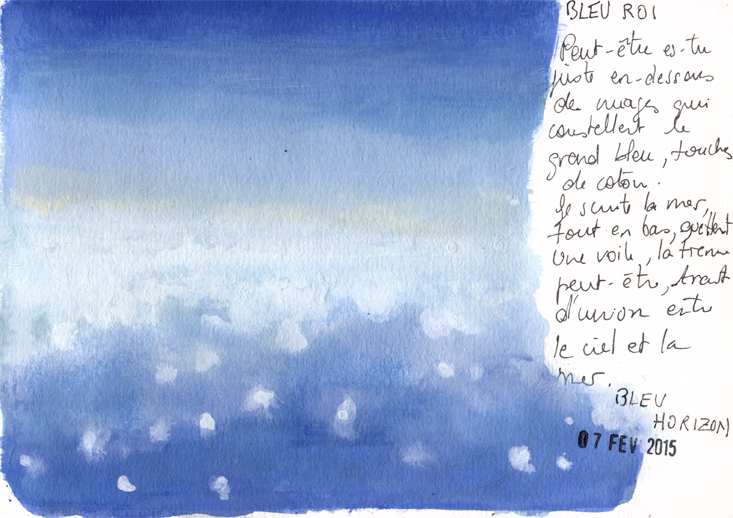 BLEU ROI
Peut-être es-tu
juste en-dessous
de nuages qui
constellent le
grand bleu, touches
de coton.
Je scrute la mer,
tout en bas, guettant
une voile, la tienne
peut-être, trait
d'union entre
le ciel et la
mer.
BLEU
HORIZON
07 FEV 2015